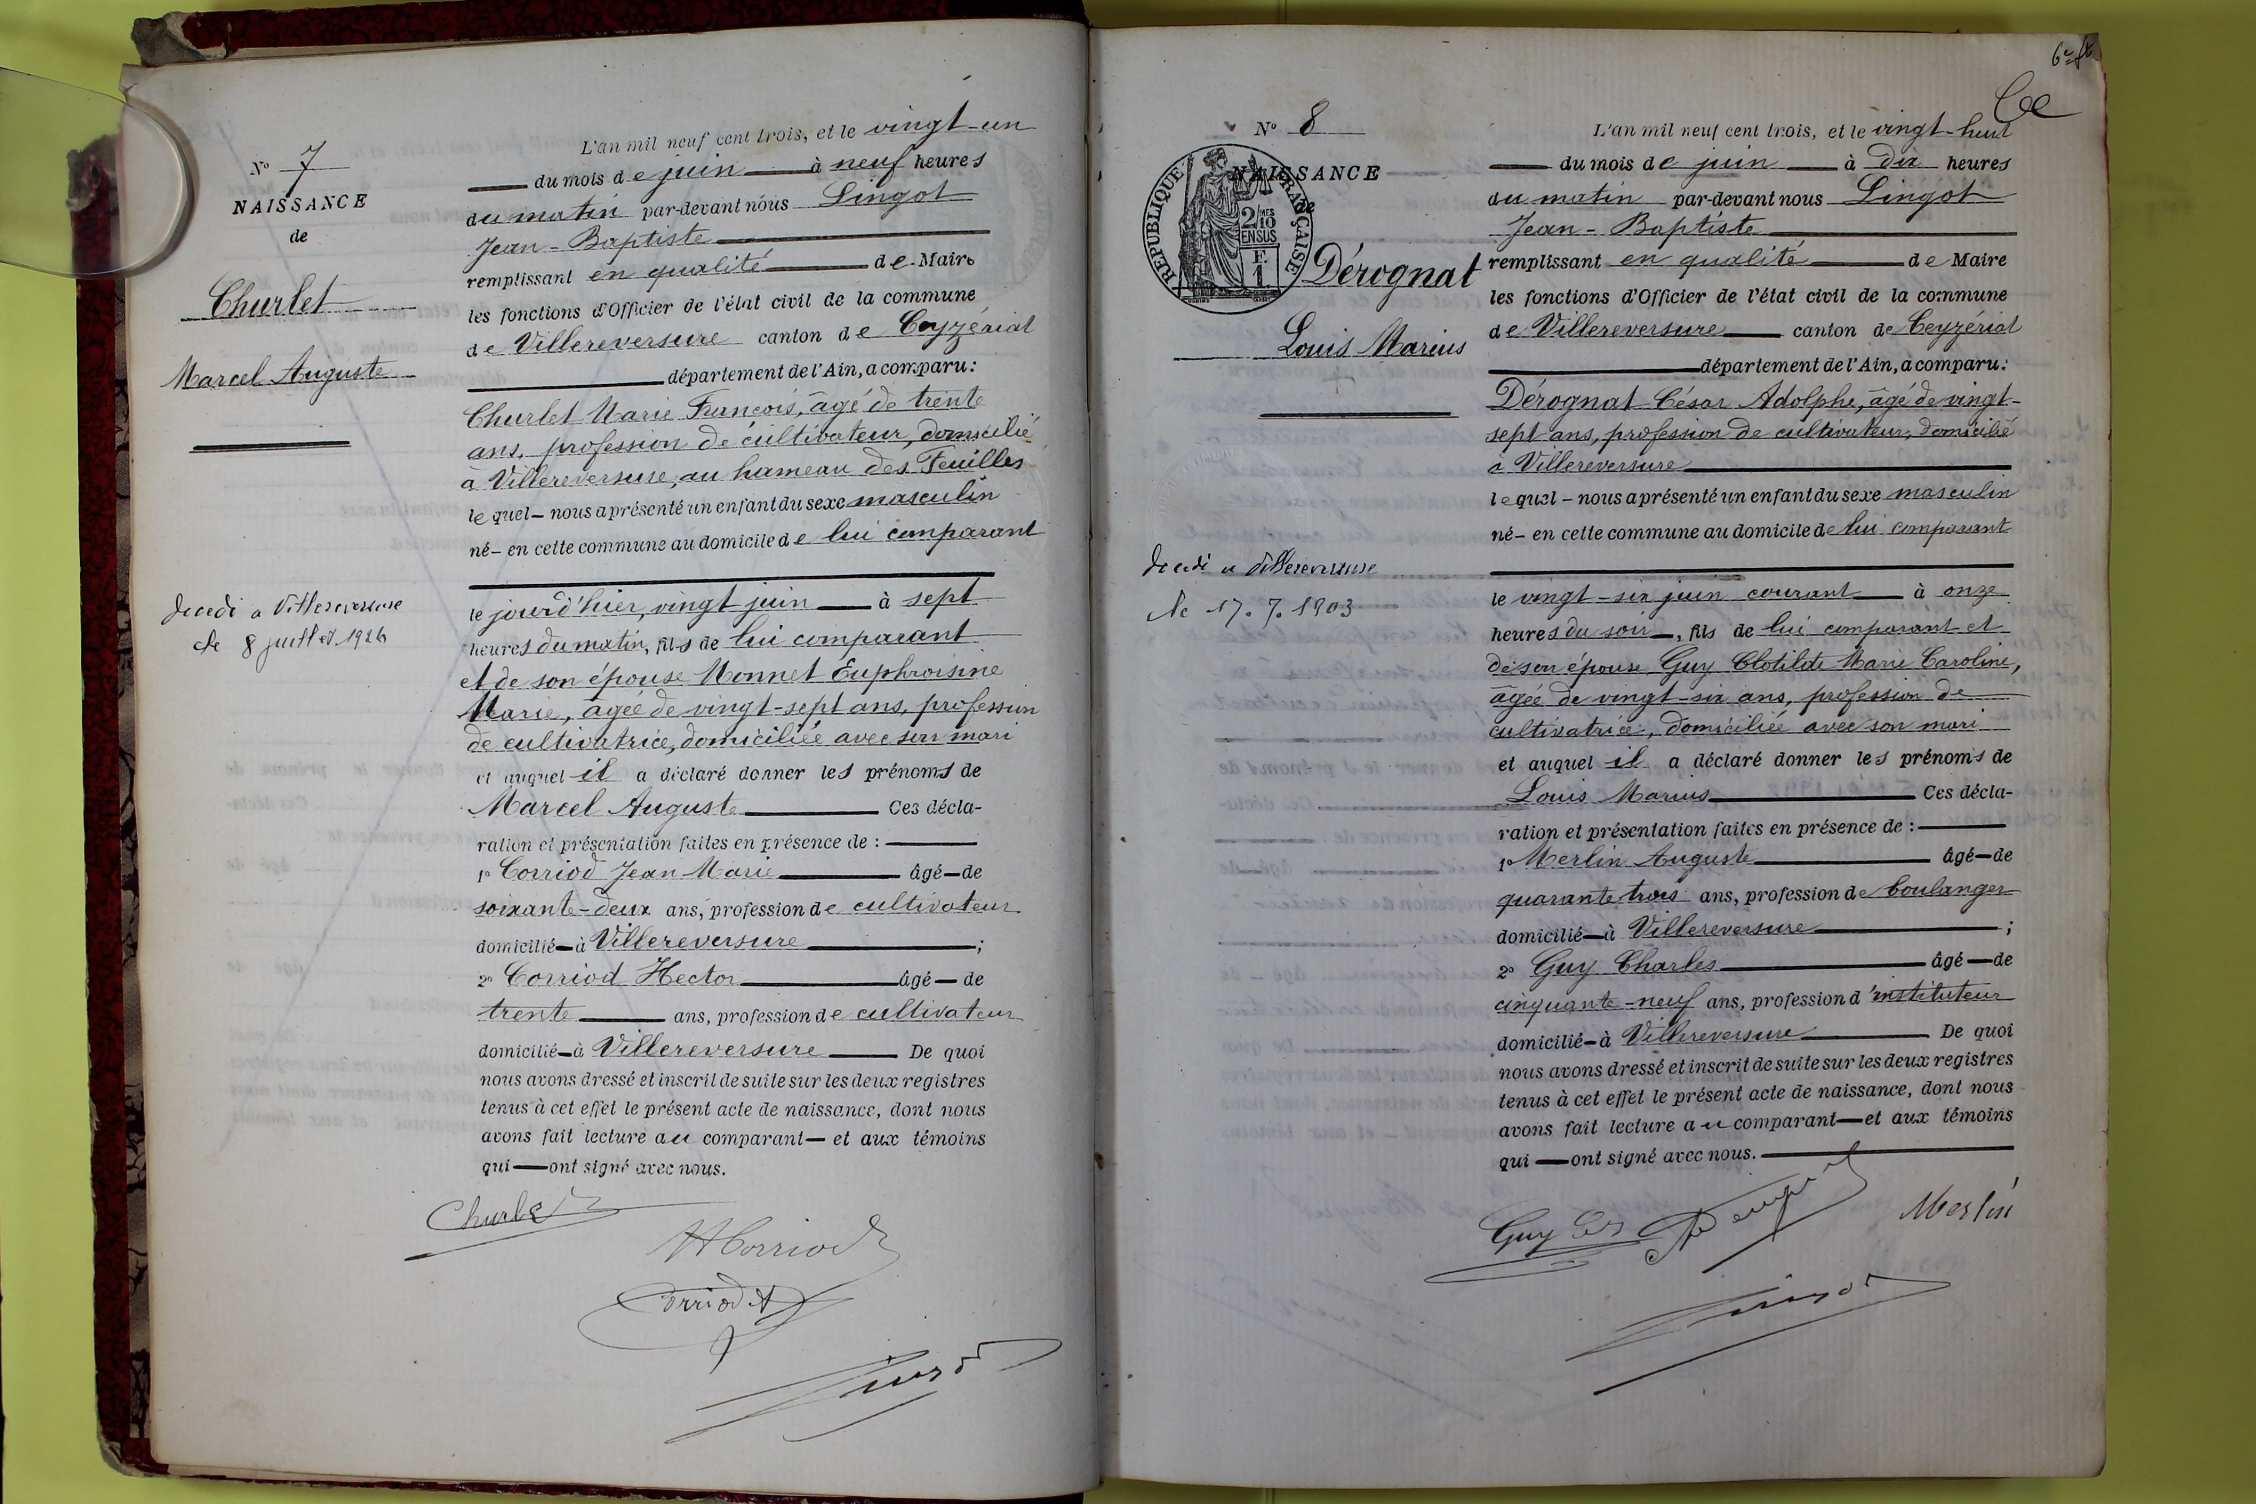 L'an mil neuf cent trois, et le vingt-un
N° 7
du mois de juin à neuf heures
NAISSANCE
du matin par-devant nous Lingot
de
Jean-Baptiste
remplissant en qualité de Maire
Churlet
les fonctions d'Officier de l'état civil de la commune
de Villereversure canton de Ceyzériat
Marcel Auguste
département de l'Ain, a comparu:
Churlet Marie François, âgé de trente
ans, profession de cultivateur, domicilié
à Villereversure, au hameau des Feuilles
lequel - nous a présenté un enfant du sexe masculin
né - en cette commune au domicile de lui comparant
décédé a Villereversure
le 8 juillet 1926
le jourd'hier, vingt juin à sept
heures du matin, fils de lui comparant
et de son épouse Monnet Euphroisine
Marie, âgée de vingt-sept ans, profession
de cultivatrice, domiciliée avec son mari
et auquel il a déclaré donner les prénoms de
Marcel Auguste Ces décla-
ration et présentation faites en présence de :
1° Corriod Jean Marie âgé - de
soixante-deux ans, profession de cultivateur
domicilié - à Villereversure ;
2° Corriod Hector âgé - de
trente ans, profession de cultivateur
domicilié - à Villereversure De quoi
nous avons dressé et inscrit de suite sur les deux registres
tenus à cet effet le présent acte de naissance, dont nous
avons fait lecture au comparant - et aux témoins
qui - ont signé avec nous.
Churlet
H Corriod
Corriod
Lingot
6e ft
N° 8
L'an mil neuf cent trois, et le vingt-huit
du mois de juin à dix heures
NAISSANCE
du matin par-devant nous Lingot
de
RÉPUBLIQUE FRANÇAISE
2/10 MES
EN SUS
F.
1
Jean-Baptiste
Dérognat
remplissant en qualité de Maire
les fonctions d'Officier de l'état civil de la commune
Louis Marius
de Villereversure canton de Ceyzériat
département de l'Ain, a comparu:
Dérognat César Adolphe, âgé de vingt-
sept ans, profession de cultivateur, domicilié
à Villereversure
lequel - nous a présenté un enfant du sexe masculin
né - en cette commune au domicile de lui comparant
décédé a Villereversure
le 17.7.1903
le vingt-six juin courant à onze
heures du soir, fils de lui comparant et
de son épouse Guy Clotilde Marie Caroline,
âgée de vingt-six ans, profession de
cultivatrice, domiciliée avec son mari
et auquel il a déclaré donner les prénoms de
Louis Marius Ces décla-
ration et présentation faites en présence de :
1° Merlin Auguste âgé - de
quarante trois ans, profession de boulanger
domicilié - à Villereversure ;
2° Guy Charles âgé - de
cinquante-neuf ans, profession d'instituteur
domicilié - à Villereversure De quoi
nous avons dressé et inscrit de suite sur les deux registres
tenus à cet effet le présent acte de naissance, dont nous
avons fait lecture au comparant - et aux témoins
qui - ont signé avec nous.
Guy Merlin
Lingot